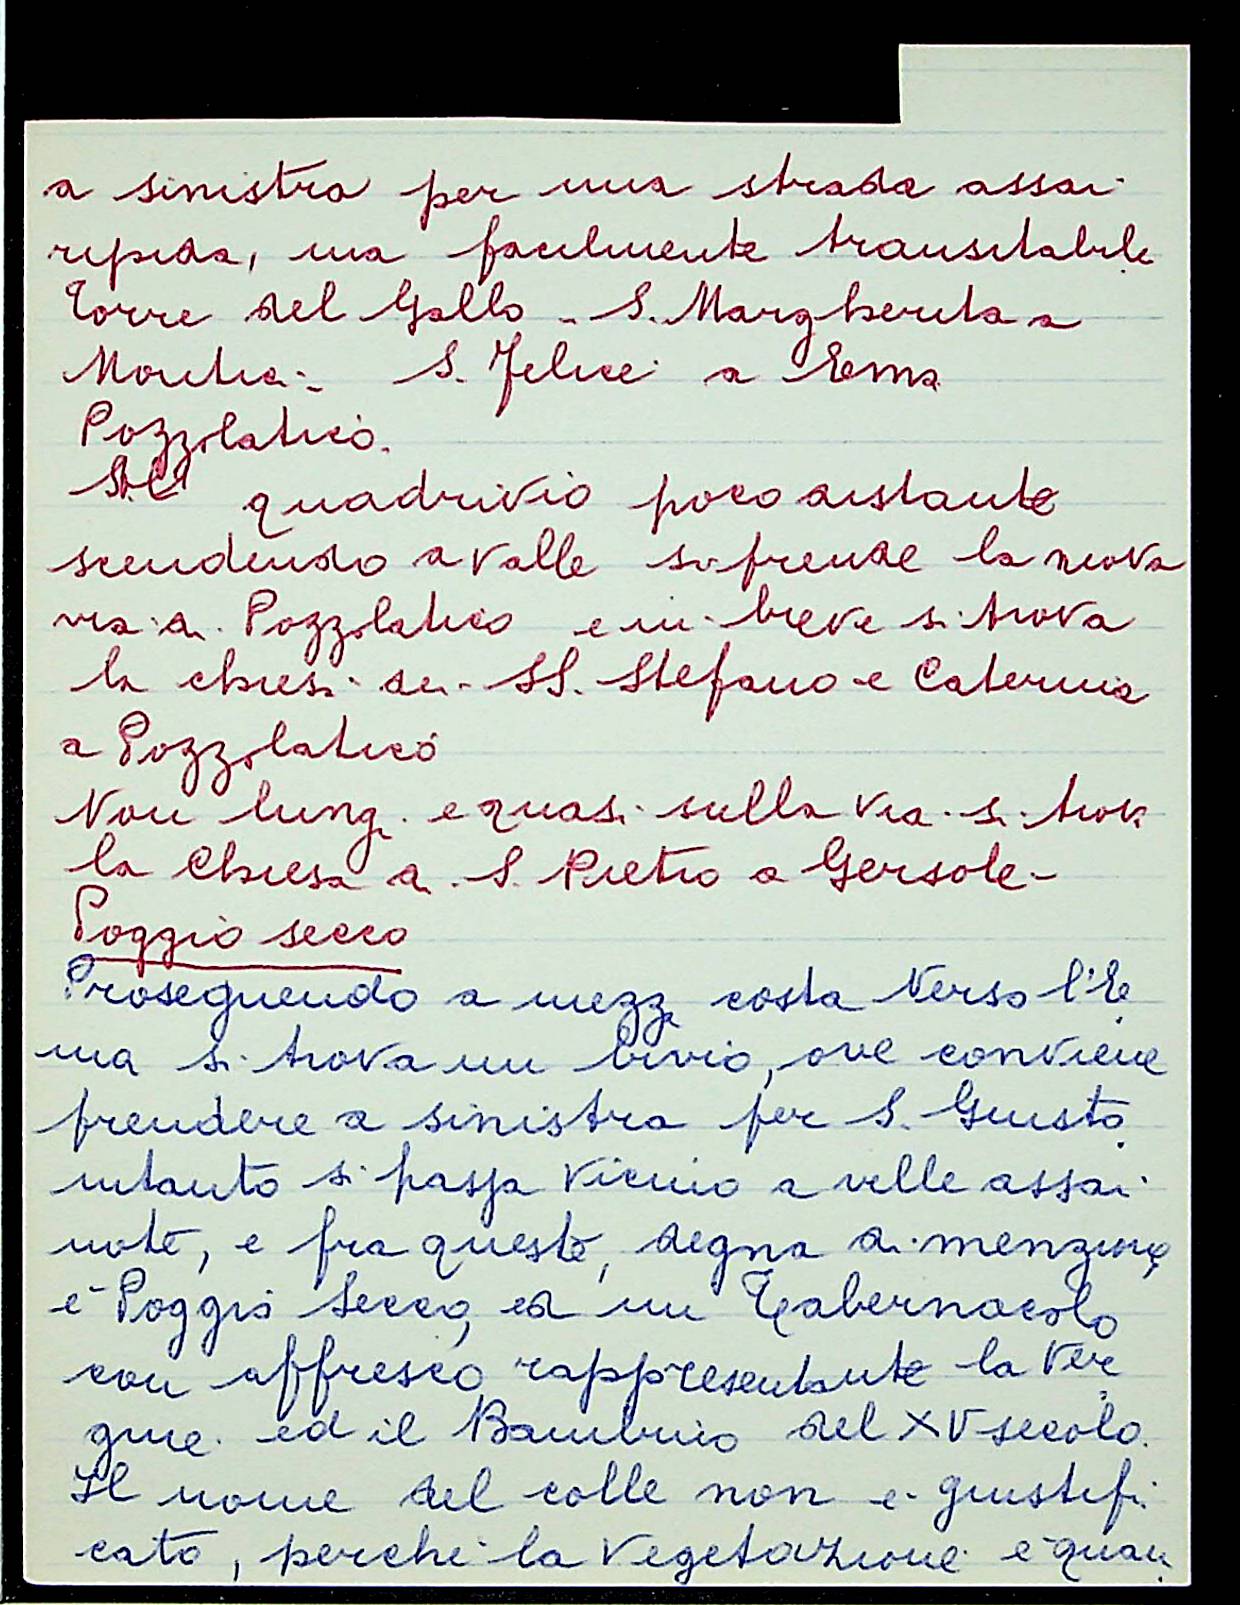 a sinistra per una strada assai
ripida, ma facilmente transitabile
Torre del Gallo - S. Margherita a
Montici - S. Felice a Ema
Pozzolatico.
Al quadrivio poco distante
scendendo a valle si prende la nuova
via di Pozzolatico e in breve si trova
la chiesa dei SS. Stefano e Caterina
a Pozzolatico
Non lungi e quasi sulla via si trova
la Chiesa di S. Pietro a Gersole -
Poggio secco
Proseguendo a mezza costa verso l'E
ma si trova un bivio, ove conviene
prendere a sinistra per S. Giusto,
intanto si passa vicino a ville assai
note, e fra queste, degna di menzione
è Poggio Secco, ed un Tabernacolo
con affresco rappresentante la Ver
gine ed il Bambino del XV secolo.
Il nome del colle non è giustifi
cato, perchè la vegetazione è quan